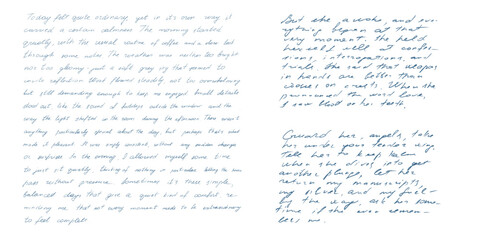 Today felt quite ordinary, yet in its own way it
carried a certain calmness. The morning started
quietly, with the usual routine of coffee and a slow look
through some notes. The weather was neither too bright
nor too gloomy, just a soft grey sky that seemed to
invite reflection. Work flowed steadily, not too overwhelming
but still demanding enough to keep me engaged. Small details
stood out, like the sound of birdsongs outside the window and the
way the light shifted in the room during the afternoon. There wasn't
anything particularly special about the day, but perhaps that's what
made it pleasant. It was simply constant, without any sudden changes
or surprises. In the evening, I allowed myself some time
to just sit quietly, thinking of nothing in particular, letting the hours
pass without pressure. Sometimes it's these simple,
balanced days that give a quiet kind of comfort, re-
minding me, that not every moment needs to be extraordinary
to feel complete.
But she awoke, and eve-
rything began at that
very moment. She held
herself well at confes-
sions, interrogations, and
trials. She said that weapons
in hands are better than
crosses on chests. When she
pronounced the word love,
I saw blood on her teeth.
Guard her, angels, take
her under your tender wing.
Tell her to keep calm
when she dives into yet
another plunge, let her
return my manuscripts,
my silver, and my frill-
by the way, ask her some-
time if she even remem-
bers me.